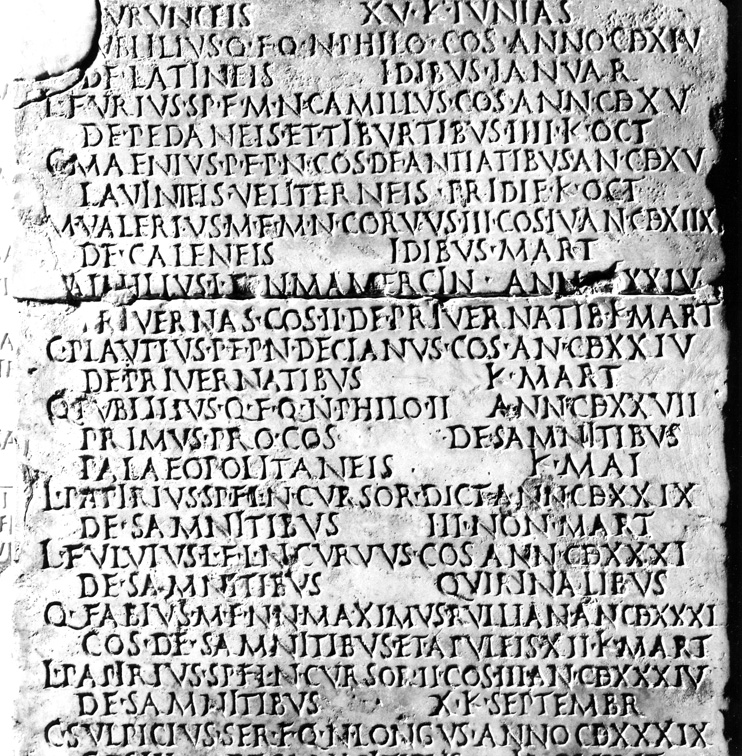 VRVNCEIS XV·K·IVNIAS
VBLILIVS·Q·F·Q·N·PHILO·COS·ANNO·CDXIV
DE·LATINEIS IDIBVS·IANVAR
L·FVRIVS·SP·F·M·N·CAMILLVS·COS·ANN·CDXV
DE·PEDANEIS·ET·TIBVRTIBVS·IIII·K·OCT
C·MAENIVS·P·F·P·N·COS·DE·ANTIATIBVS·AN·CDXV
LAVINIEIS·VELITERNEIS·PRIDIE·K·OCT
M·VALERIVS·M·F·M·N·CORVVS·III·COS·IV·AN·CDXIIX
DE·CALENEIS IDIBVS·MART
AIMILIVS·L·F·L·N·MAMERCIN· ANN XXIV
PRIVERNAS·COS·II·DE·PRIVERNATIB·K·MART
C·PLAVTIVS·P·F·P·N·DECIANVS·COS·AN·CDXXIV
DE·PRIVERNATIBVS K·MART
Q·PVBLILIVS·Q·F·Q·N·PHILO·II ANN·CDXXVII
PRIMVS·PRO·COS DE·SAMNITIBVS
PALAEOPOLITANEIS K·MAI
L·PAPIRIVS·SP·F·L·N·CVRSOR·DICT·ANN·CDXXIX
DE·SAMNITIBVS III·NON·MART
L·FVLVIVS·L·F·L·N·CVRVVS·COS ANN·CDXXXI
DE·SAMNITIBVS QVIRINALIBVS
Q·FABIVS·M·F·N·N·MAXIMVS·RVLLIAN·AN·CDXXXI
COS·DE·SAMNITIBVS·ET·APVLEIS·XII·K·MART
L·PAPIRIVS·SP·F·L·N·CVRSOR·II·COS·III·AN·CDXXXIV
DE·SAMNITIBVS X·K·SEPTEMBR
C·SVLPICIVS·SER·F·Q·N·LONGVS·ANNO·CDXXXIX